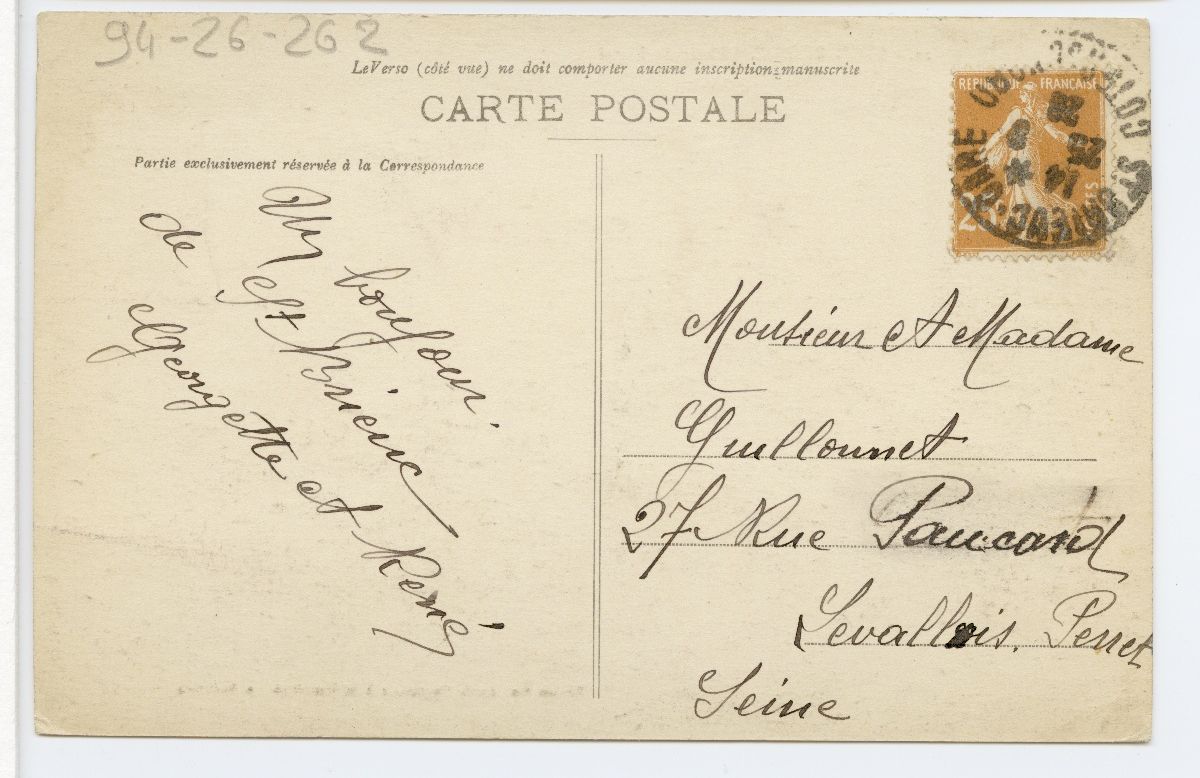 94-26-262
Le Verso (côté vue) ne doit comporter aucune inscription manuscrite
CARTE POSTALE
Partie exclusivement réservée à la Correspondance
Un bonjour
de St Brieuc
Georgette et René
REPUBLIQUE FRANÇAISE
Monsieur et Madame
Guillonnet
27 Rue Pancard
Levallois. Perret
Seine